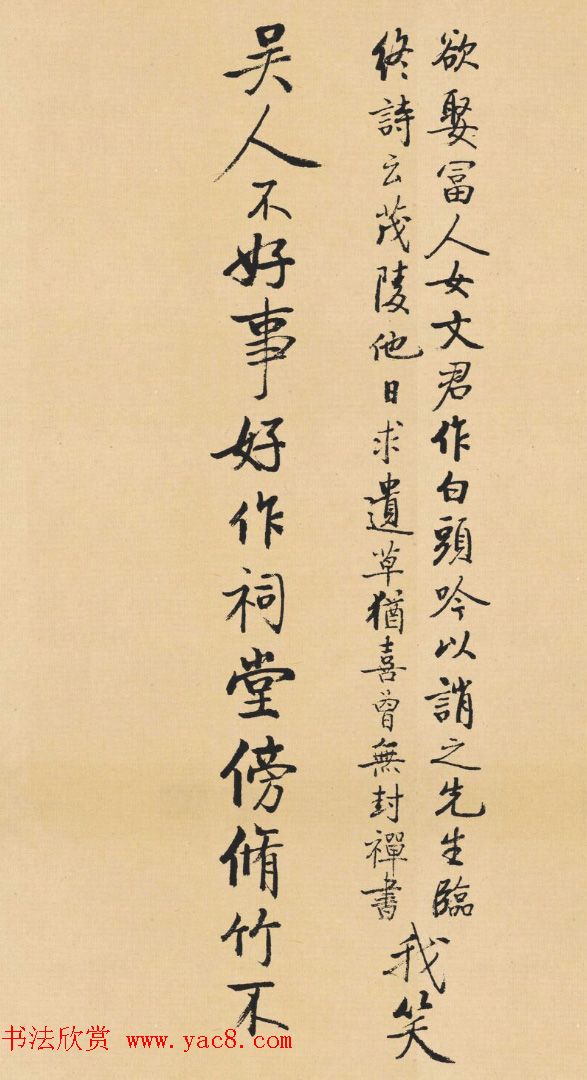 欲娶富人女文君作白頭吟以誚之先生臨
終詩云茂陵他日求遺草猶喜曾無封禪書
我笑
吴人不好事好作祠堂傍脩竹不
书法欣赏 www.yac8.com